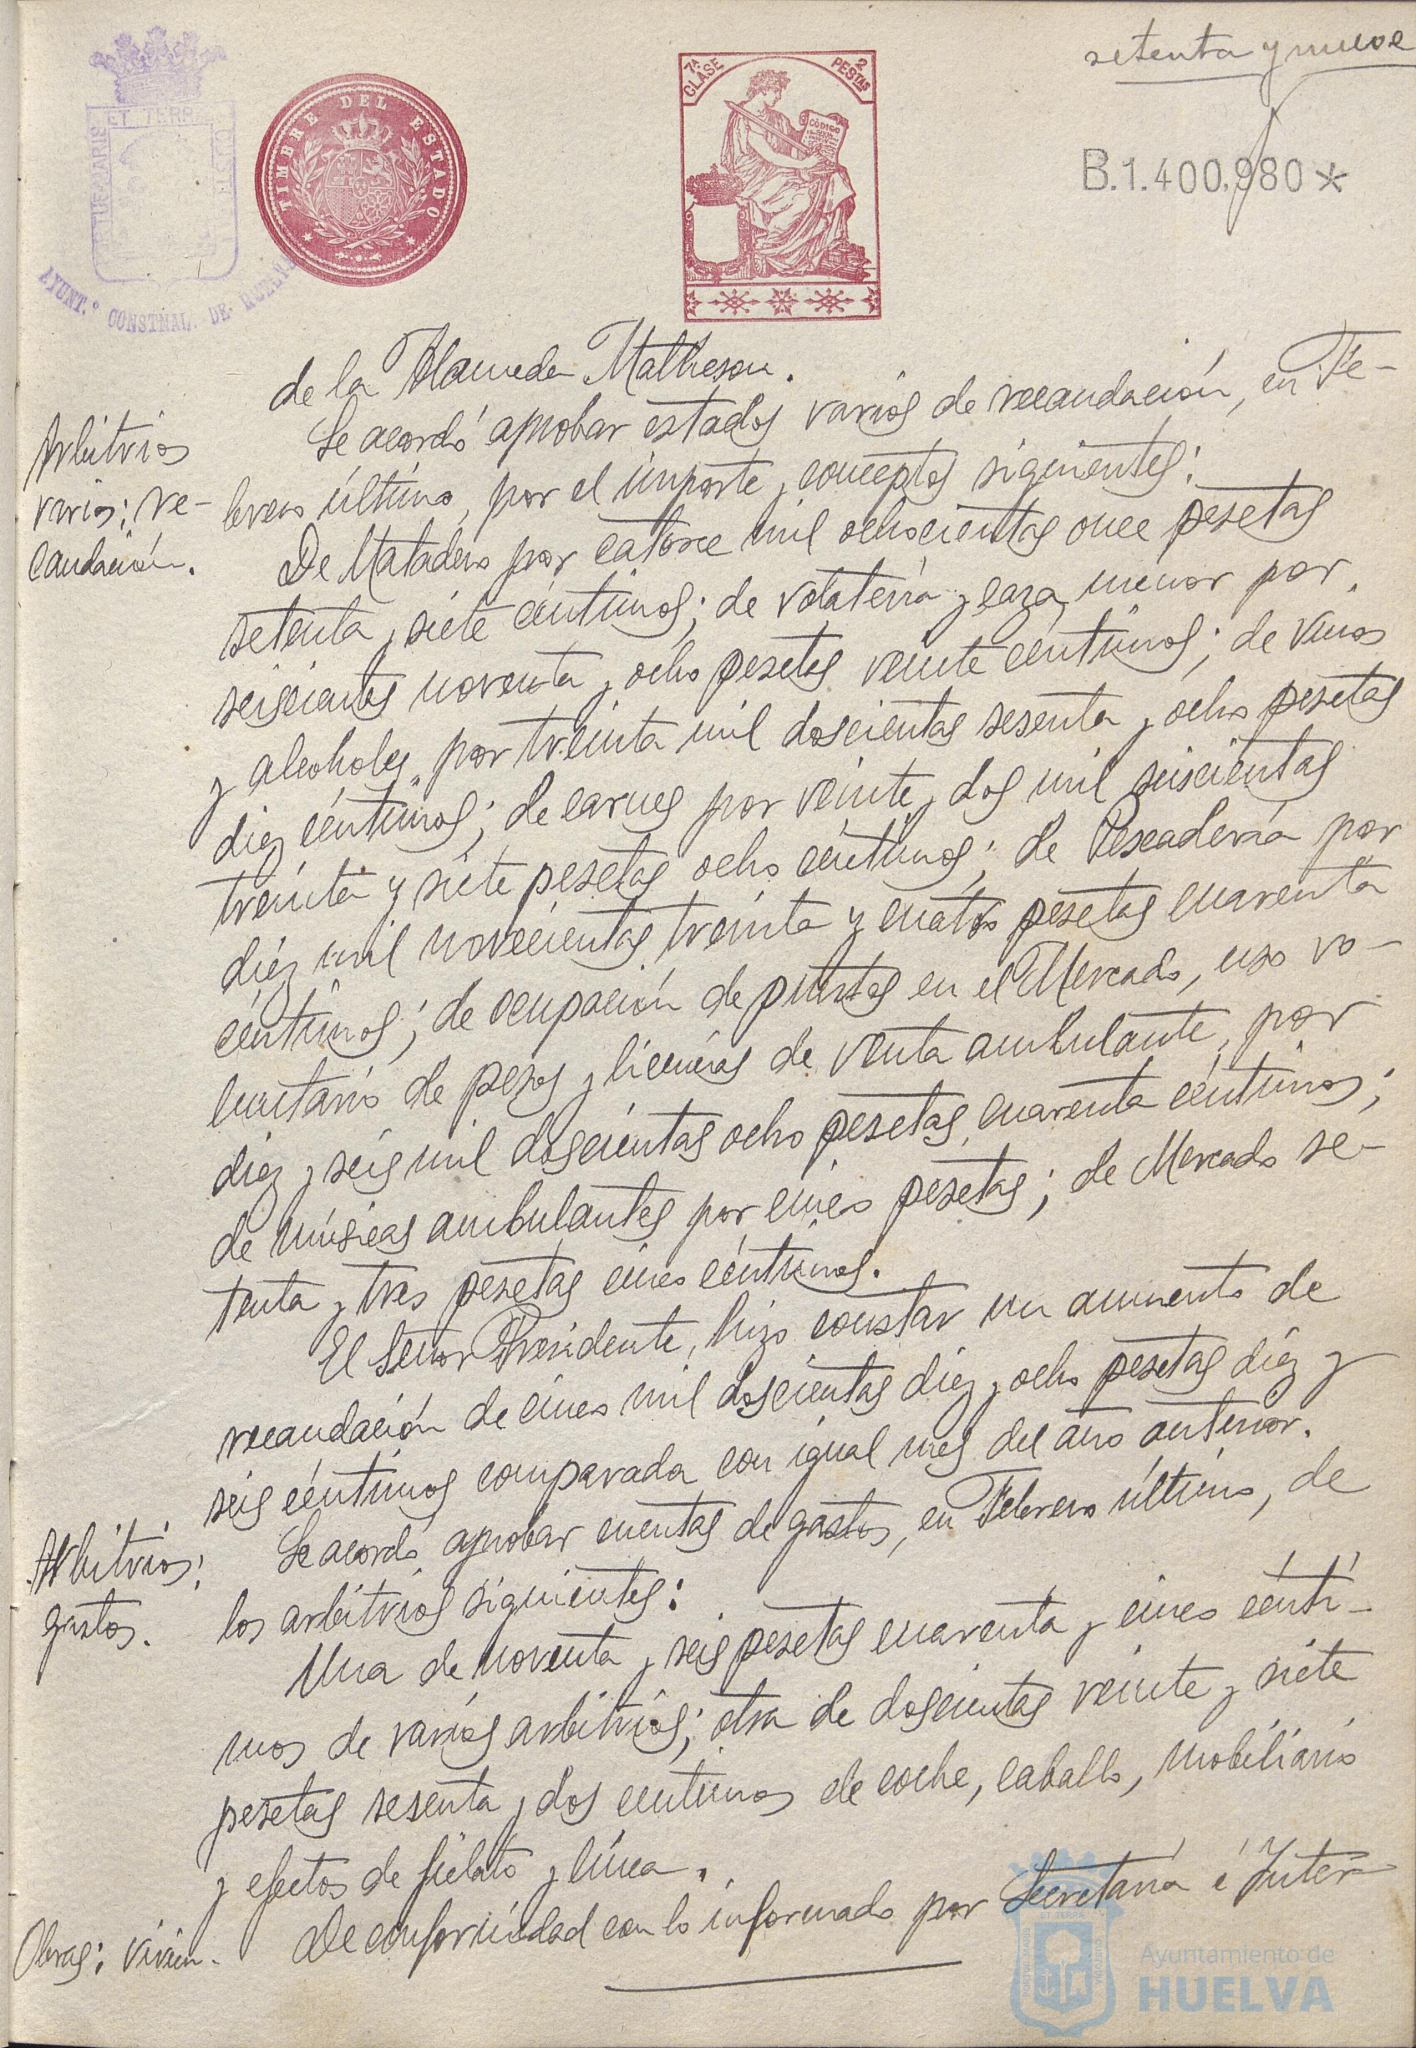 setenta y nueve
TIMBRE DEL ESTADO
7ª CLASE
2 PESTAS
CÓDIGO
B.1.400.980*
AYUNT.º CONSTNAL. DE HUELVA
de la Alameda Matheson.
Arbitrios
varios; re-
caudación.
Se acordó aprobar estados varios de recaudación, en Fe-
brero último, por el importe y conceptos siguientes:
De Matadero por catorce mil ochocientas once pesetas
setenta y siete céntimos; de volatería y caza menor por
seiscientas noventa y ocho pesetas veinte céntimos; de vinos
y alcoholes por treinta mil doscientas sesenta y ocho pesetas
diez céntimos; de carnes por veinte y dos mil seiscientas
treinta y siete pesetas ocho céntimos; de Pescadería por
diez mil novecientas treinta y cuatro pesetas cuarenta
céntimos; de ocupación de puestos en el Mercado, uso vo-
luntario de pesos y licencias de venta ambulante, por
diez y seis mil doscientas ocho pesetas cuarenta céntimos;
de músicas ambulantes por cinco pesetas; de Mercado se-
tenta y tres pesetas cinco céntimos.
El Señor Presidente, hizo constar un aumento de
recaudación de cinco mil doscientas diez y ocho pesetas diez y
seis céntimos comparada con igual mes del año anterior.
Arbitrios;
gastos.
Se acordó aprobar cuentas de gastos, en Febrero último, de
los arbitrios siguientes:
Una de noventa y seis pesetas cuarenta y cinco cénti-
mos de varios arbitrios; otra de doscientas veinte y siete
pesetas sesenta y dos centimos de coche, caballo, mobiliario
y efectos de fielato y línea.
Obras;
De conformidad con lo informado por Secretaría é Inter-
Ayuntamiento de
HUELVA